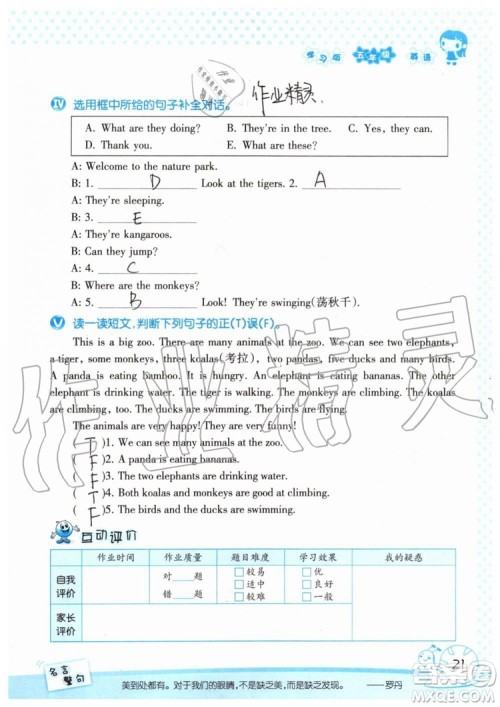 学习版 五年级 英语
作业精灵
IV 选用框中所给的句子补全对话。
A. What are they doing? B. They're in the tree. C. Yes, they can.
D. Thank you. E. What are these?
A: Welcome to the nature park.
B: 1. D Look at the tigers. 2. A
A: They're sleeping.
B: 3. E
A: They're kangaroos.
B: Can they jump?
A: 4. C
B: Where are the monkeys?
A: 5. B Look! They're swinging(荡秋千).
V 读一读短文,判断下列句子的正(T)误(F)。
This is a big zoo. There are many animals at the zoo. We can see two elephants,
a tiger, some monkeys, three koalas(考拉), two pandas, five ducks and many birds.
A panda is eating bamboo. It is hungry. An elephant is eating bananas. The other
elephant is drinking water. The tiger is walking. The monkeys are climbing. The koalas
are climbing, too. The ducks are swimming. The birds are flying.
The animals are very happy! They are very funny!
( T )1. We can see many animals at the zoo.
( F )2. A panda is eating bananas.
( F )3. The two elephants are drinking water.
( T )4. Both koalas and monkeys are good at climbing.
( F )5. The birds and the ducks are swimming.
互动评价
作业时间 作业质量 题目难度 学习效果 我的疑惑
自我评价 对 题 错 题 □较易 □适中 □较难 □优 □良好 □一般
家长评价
21
名言警句
美到处都有。对于我们的眼睛,不是缺乏美,而是缺乏发现。 ——罗丹
作业精灵